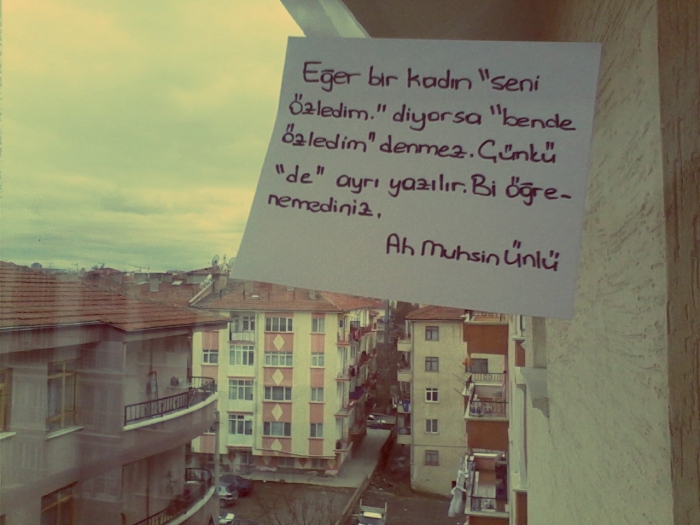 Eğer bir kadın "seni
özledim." diyorsa "bende
özledim" denmez. Çünkü
"de" ayrı yazılır. Bi öğre-
nemediniz.
Ah Muhsin Ünlü